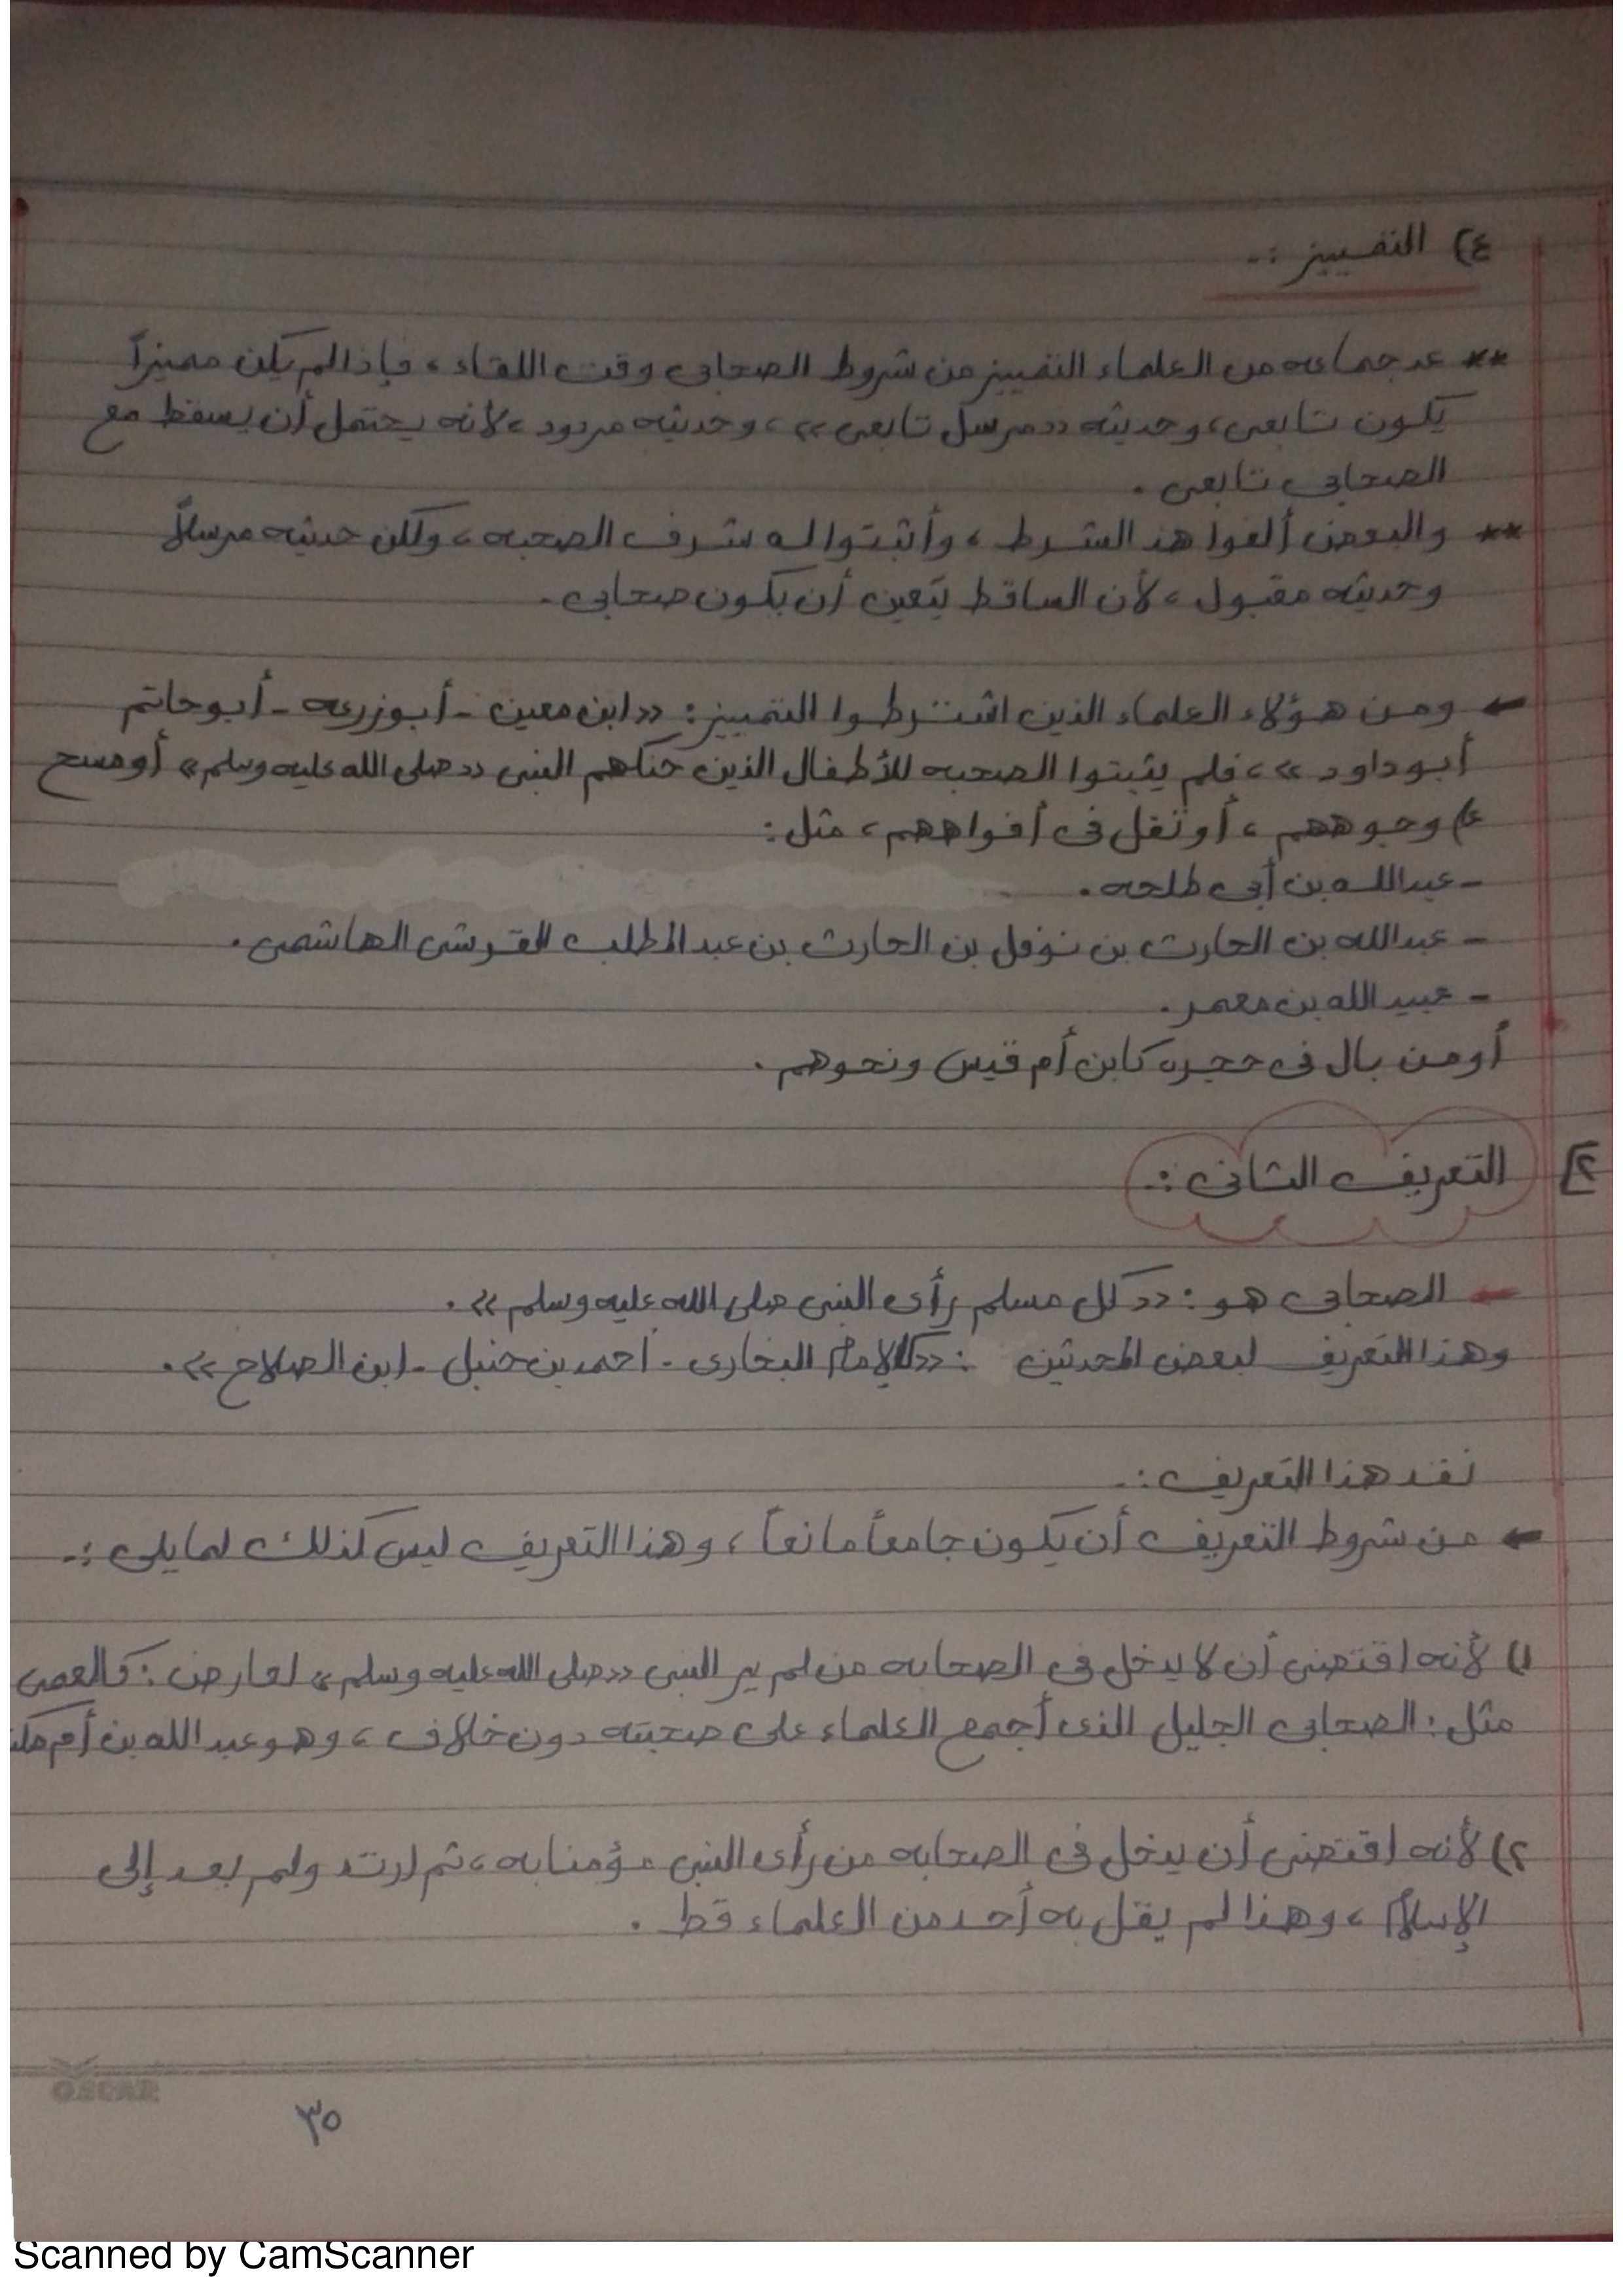 ٤) التمييز :-
** عد جماعه من العلماء التمييز من شروط الصحابى وقت اللقاء ، فإذا لم يكن مميزاً
يكون تابعى ، وحديثه «مرسل تابعى» ، وحديثه مردود ، لأنه يحتمل أن يسقط مع
الصحابى تابعى .
** والبعض ألغوا هذ الشرط ، وأثبتوا له شرف الصحبه ، ولكن حديثه مرسلاً
وحديثه مقبول ، لأن الساقط يتعين أن يكون صحابى .
← ومن هؤلاء العلماء الذين اشترطوا التمييز : «ابن معين - أبو زرعه - أبو حاتم
أبو داود» ، فلم يثبتوا الصحبه للأطفال الذين حنكهم النبى «صلى الله عليه وسلم» أو مسح
وجوههم ، أو تفل فى أفواههم ، مثل :
- عبد الله بن أبى طلحه .
- عبد الله بن الحارث بن نوفل بن الحارث بن عبد المطلب القرشى الهاشمى .
- عبيد الله بن معمر .
أو من بال فى حجره كابن أم قيس ونحوهم .
٢] التعريف الثانى :-
← الصحابى هو : «كل مسلم رأى النبى صلى الله عليه وسلم» .
وهذا التعريف لبعض المحدثين : «كالإمام البخارى - أحمد بن حنبل - ابن الصلاح» .
نقد هذا التعريف :-
← من شروط التعريف أن يكون جامعاً مانعاً ، وهذا التعريف ليس كذلك لما يلى :-
١) لأنه اقتضى أن لا يدخل فى الصحابه من لم ير النبى «صلى الله عليه وسلم» لعارض : كالعمى
مثل : الصحابى الجليل الذى أجمع العلماء على صحبته دون خلاف ، وهو عبد الله بن أم
٢) لأنه اقتضى أن يدخل فى الصحابه من رأى النبى مؤمنا به ، ثم ارتد ولم يعد إلى
الإسلام ، وهذا لم يقل به أحد من العلماء قط .
OSCAR
٣٥
Scanned by CamScanner